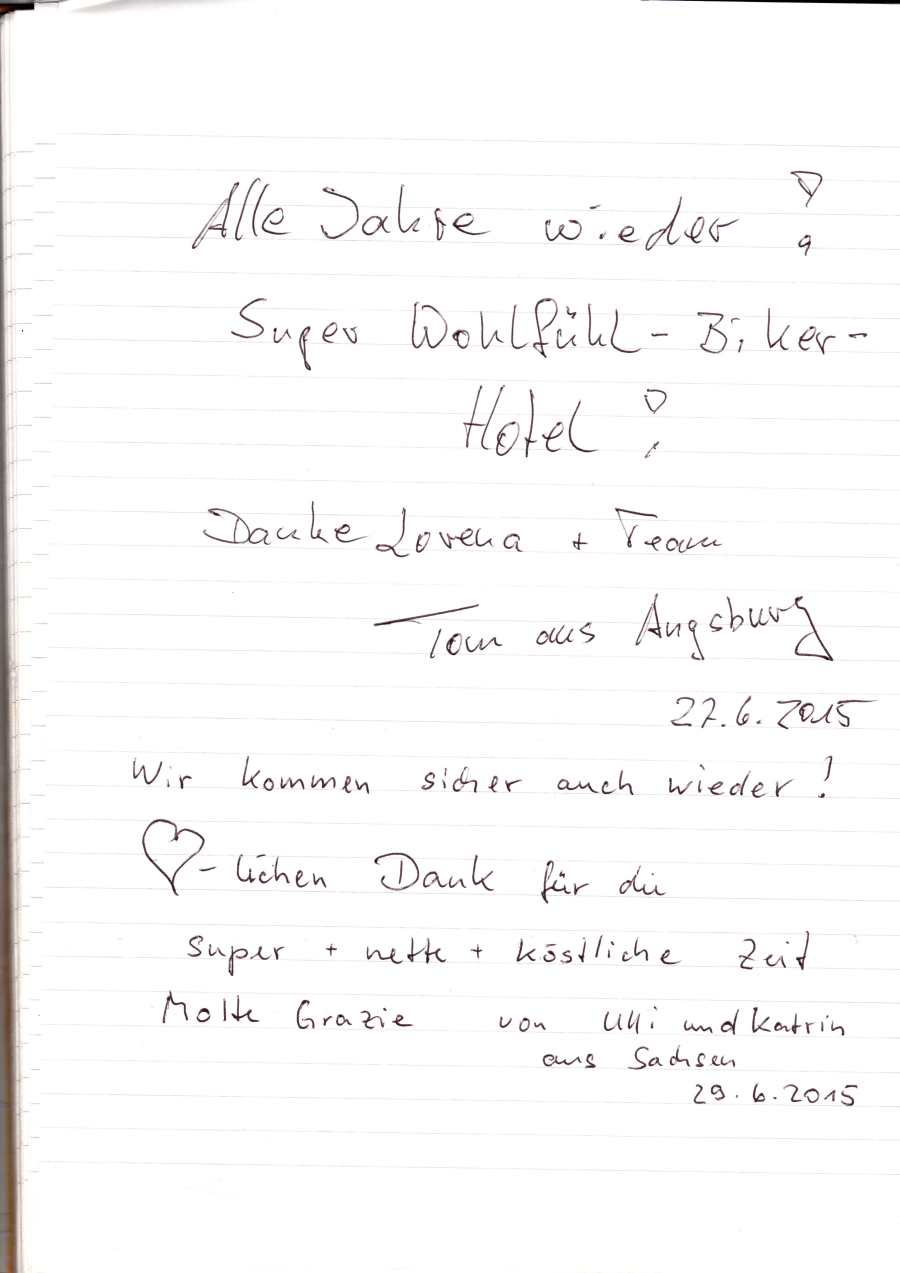 Alle Jahre wieder !
Super Wohlfühl-Biker-
Hotel !
Danke Lorena + Team
Tom aus Augsburg
27.6.2015
Wir kommen sicher auch wieder !
♡-lichen Dank für die
super + nette + köstliche Zeit
Molte Grazie von Ulli und Katrin
aus Sachsen
29.6.2015